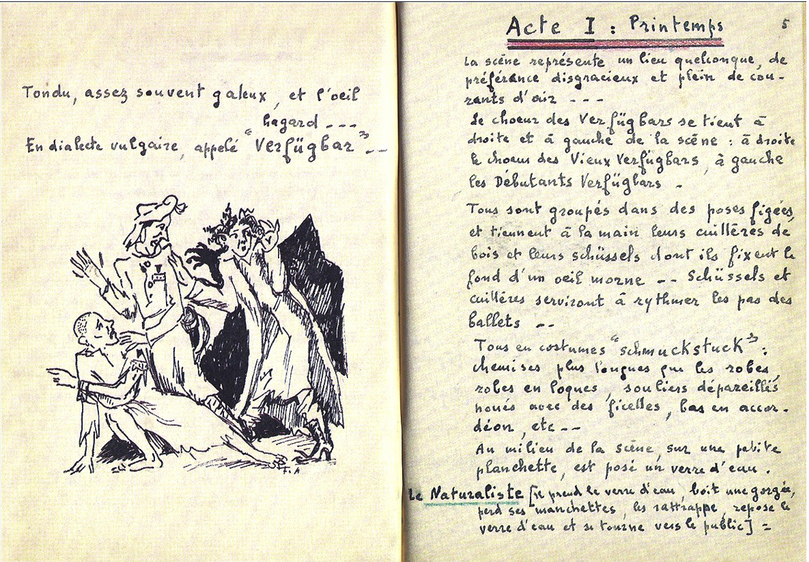 Tondu, assez souvent galeux, et l'oeil
hagard ---
En dialecte vulgaire, appelé "Verfügbar" --
F.A
Acte I : Printemps
5
La scène représente un lieu quelconque, de
préférence disgracieux et plein de cou-
rants d'air ---
Le choeur des Verfügbars se tient à
droite et à gauche de la scène : à droite
le choeur des Vieux Verfügbars, à gauche
les Débutants Verfügbars -
Tous sont groupés dans des poses figées,
et tiennent à la main leurs cuillères de
bois et leurs schüssels dont ils fixent le
fond d'un oeil morne -- Schüssels et
cuillères serviront à rythmer les pas des
ballets --
Tous en costumes "schmuckstuck" :
chemises plus longues que les robes,
robes en loques, souliers dépareillés
noués avec des ficelles, bas en accor-
déon, etc --
Au milieu de la scène, sur une petite
planchette, est posé un verre d'eau.
Le Naturaliste [il prend le verre d'eau, boit une gorgée,
perd ses manchettes, les rattrappe, repose le
verre d'eau et se tourne vers le public] =